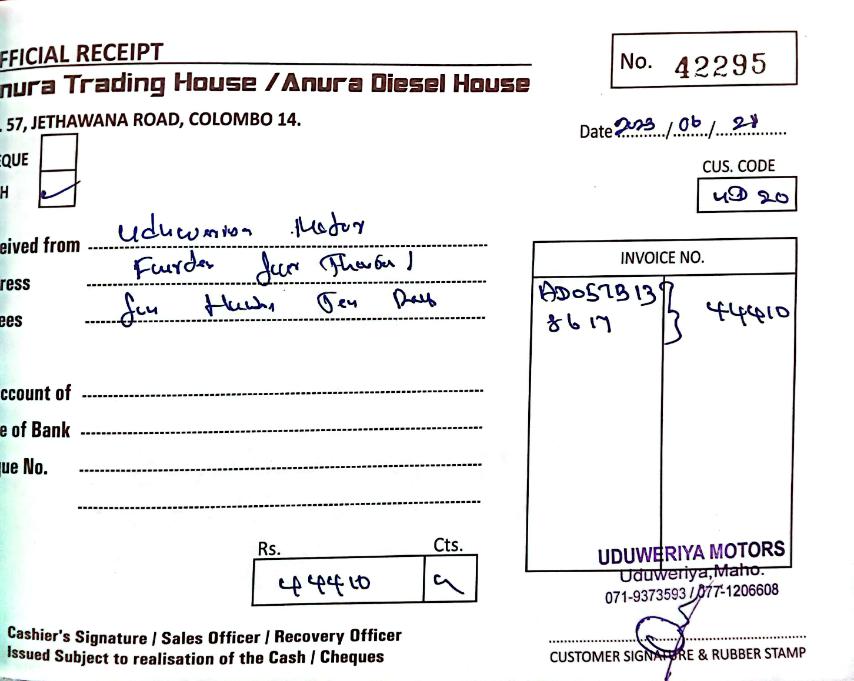 FFICIAL RECEIPT
nura Trading House / Anura Diesel House
No. 42295
. 57, JETHAWANA ROAD, COLOMBO 14.
Date 2023 / 06 / 21
QUE
H
CUS. CODE
UD 20
eived from Motor
ress
ees Ten
INVOICE NO.
AD057B13
8617
44410
ccount of
e of Bank
ue No.
Rs. Cts.
44410
UDUWERIYA MOTORS
Uduweriya,Maho.
071-9373593 / 077-1206608
Cashier's Signature / Sales Officer / Recovery Officer
Issued Subject to realisation of the Cash / Cheques
CUSTOMER SIGNATURE & RUBBER STAMP